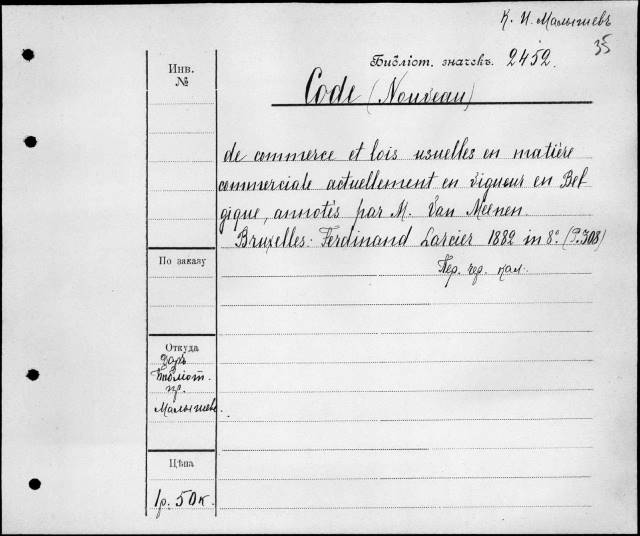 К. И. Малышевъ
35
Библіот. значекъ. 2452.
Инв.
№
Code (Nouveau)
de commerce et lois usuelles en matière
commerciale actuellement en vigueur en Bel
gique, annotés par M. Van Meenen.
Bruxelles: Ferdinand Larcier 1882 in 8º. (P. 308)
Пер. чер. кал.
По заказу
Откуда
Даръ
Библіот.
пр.
Малышева.
Цѣна
1р. 50к.